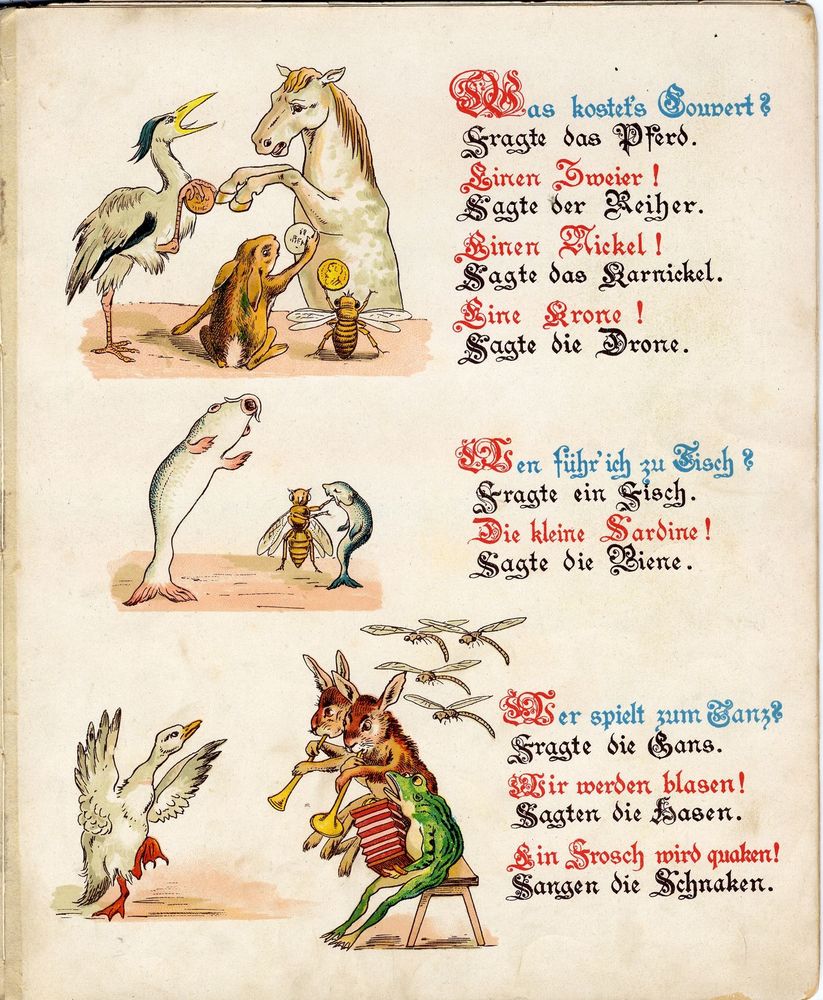 Was kostet's Couvert?
Fragte das Pferd.
Einen Zweier!
Sagte der Reiher.
Einen Nickel!
Sagte das Karnickel.
Eine Krone!
Sagte die Drone.
Wen führ' ich zu Tisch?
Fragte ein Fisch.
Die kleine Sardine!
Sagte die Biene.
Wer spielt zum Tanz?
Fragte die Gans.
Wir werden blasen!
Sagten die Hasen.
Ein Frosch wird quaken!
Sangen die Schnaken.